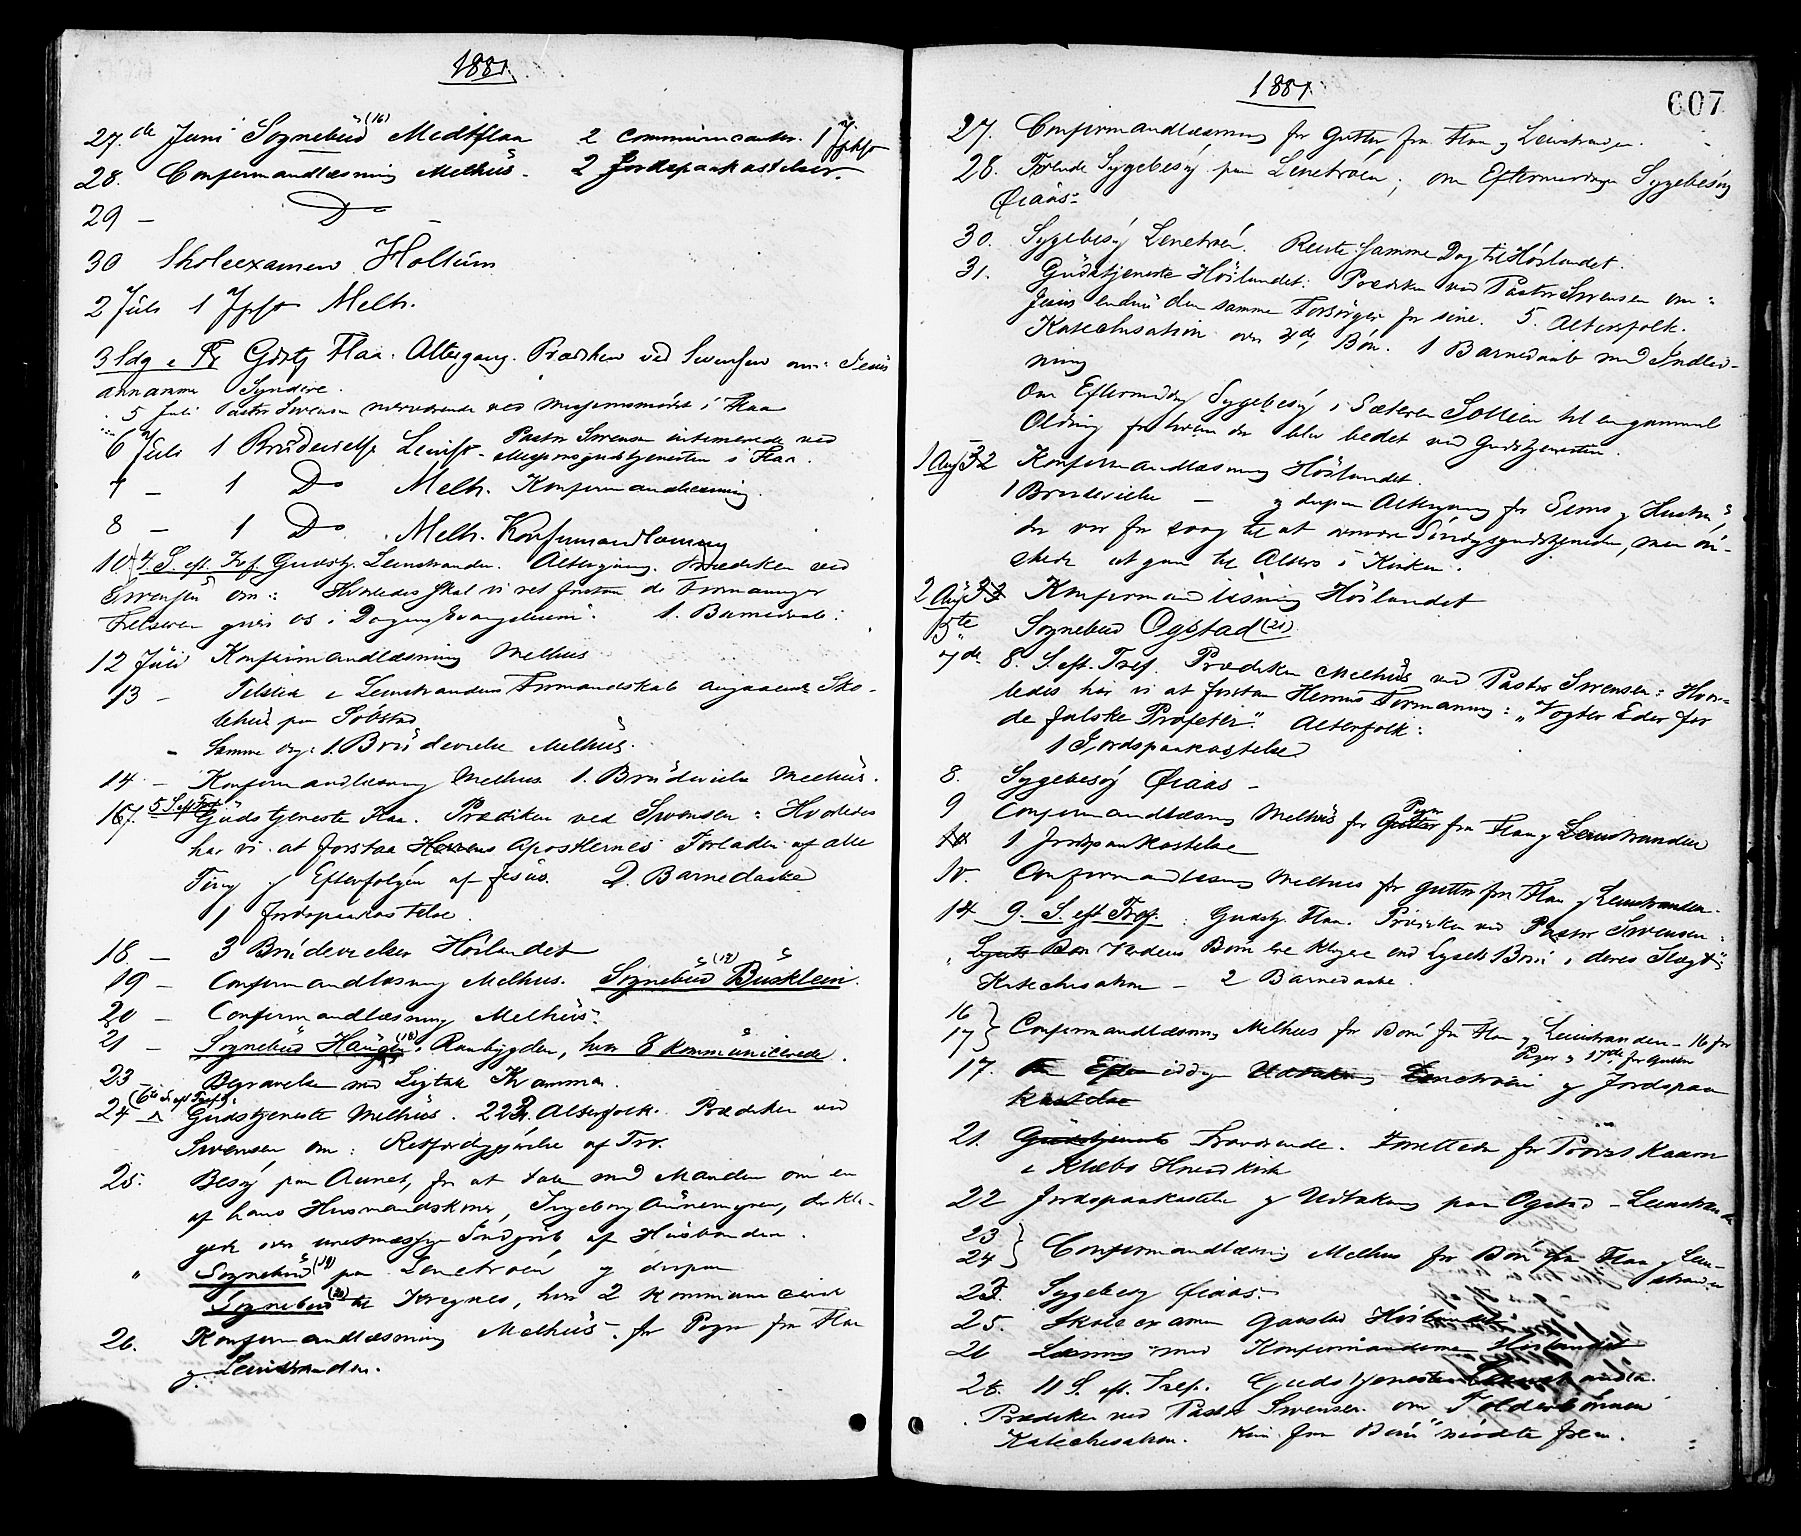 1881.
27.de Juni Sognebud (16) Medtflaa 2 communicanter. 1 Jphjo
28. Confirmandlæsning Melhus. 2 Jordspaakastelser.
29 — Do —
30 Skoleexamen Holtum
2 Juli 1 Jphjo Melh.
3 Sdg e Tr Gdstj Flaa. Altergang. Prædiken ved Svensen om: Jesus
annamme Syndere.
5 Juli Pastor Svensen nærværende ved Missionsmødet i Flaa
6 Juli 1 Brudevielse Leinst. Pastor Svensen intimerede ved
Missionsgudstjenesten i Flaa.
7 — 1 Do Melh. Konfirmandlæsning.
8 — 1 Do Melh. Konfirmandlæsning
10 4 S. eft. Tref. Gudstj. Leinstranden. Altergang. Prædiken ved
Svensen om: Hvorledes skal vi ret forstaa de Formaninger
Frelseren giver os i Dagens Evangelium. 1. Barnedaab.
12 Juli Konfirmandlæsning Melhus
13 — Tilstede i Leinstrandens Formandskab angaaende Sko-
lehus paa Sobstad
— Samme dag: 1. Brudevielse Melhus.
14 — Konfirmandlæsning Melhus 1. Brudevielse Melhus.
17. 5 S. eft Tref. Gudstjeneste Flaa. Prædiken ved Svensen: Hvorledes
har vi at forstaa Herrens Apostlernes Forladen af alle
Ting og Efterfølgen af Jesus. 2. Barnedaabe
1 Jordspaakastelse.
18 — 3 Brudevielser Hölandet
19 — Confirmandlæsning Melhus. Sognebud (17) Busklein.
20 — Confirmandlæsning Melhus.
21 — Sognebud Haugen (18) i Raabygden, hvor 8 kommunicerede.
23 Begravelse med Ligtale Kramma.
24 — 6te S. eft Tref. Gudstjeneste Melhus. 22 Alterfolk. Prædiken ved
Svensen om: Retfærdiggjörelse af Tro.
25. Besøg paa Aunet, for at tale med Manden om en
af hans Husmandskoner, Ingeborg Aunemyren, der kla-
gede over uretmæssige Indgreb af Husbonden.
" Sognebud (19) paa Lenetröen og derpaa
Sognebud (20) til Kregnes, hvor 2 kommunicerede
26. Konfirmandlæsning Melhus for Piger fra Flaa
og Leinstranden.
1881.
607
27. Confirmandlæsning for Gutter fra Flaa og Leinstranden.
28. Sygebesög paa Lenetröen; om Eftermiddagen Sygebesög
Öiaas.
30. Sygebesög Lenetröen. Reiste samme Dag til Hölandet.
31. Gudstjeneste Hölandet: Prædiken ved Pastor Svensen om:
Jesus endnu den samme Forsørger for sine. 5. Alterfolk.
Katechisation over 4de Bön. 1 Barnedaab med Indled-
ning
Om Eftermiddag Sygebesög i Sæteren Sollien til en gammel
Olding for hvem der blev bedet ved Gudstjenesten.
1 Aug Konfirmandlæsning Hölandet.
1 Brudevielse — og derpaa Altergang for Sems og Hustru,
der var for svag til at overvære Söndagsgudstjenesten, men ön-
skede at gaa til Alters i Kirken.
2 Aug Konfirmandlæsning Hölandet
5te Sognebud Ogstad (21)
7de 8. S. eft. Tref. Prædiken Melhus ved Pastor Svensen: Hvor-
ledes har vi at forstaa Herrens Formaning: „Vogter Eder for
de falske Profeter". Alterfolk:
1 Jordspaakastelse
8. Sygebesög Öiaas —
9 Confirmandlæsning Melhus for Piger fra Flaa og Leinstranden
1 Jordspaakastelse
10. Confirmandlæsning Melhus for Gutter fra Flaa og Leinstranden.
14 9. S. eft Tref.: Gudstj. Flaa. Prædiken ved Pastor Svensen:
„ Verdens Börn ere klogere end Lysets Börn i deres Slægt"
Katechisation — 2 Barnedaabe.
16
17 } Confirmandlæsning Melhus for Börn fra Flaa og Leinstranden — 16 for
Piger og 17de for Gutter
17. Lenetröen og Jordspaa
kastelse
21. Gudstjeneste Fraværende. Forrettede for Provst Kaarm
i Klæbo Hoved kirke
22 Jordspaakastelse og Udtakning paa Ogstad — Leinstranden
23
24 } Confirmandlæsning Melhus for Börn fra Flaa og Lein-
stranden
23. Sygebesög Öiaas.
25. Skoleexamen Gaustad Hölandet
26 Læsning med Konfirmanderne Hölandet
28. 11 S. eft. Tref. Gudstjeneste Leinstranden.
Prædiken ved Pastor Svensen om Tolderbönnen
Katechisation. Kun faa Börn mödte frem.